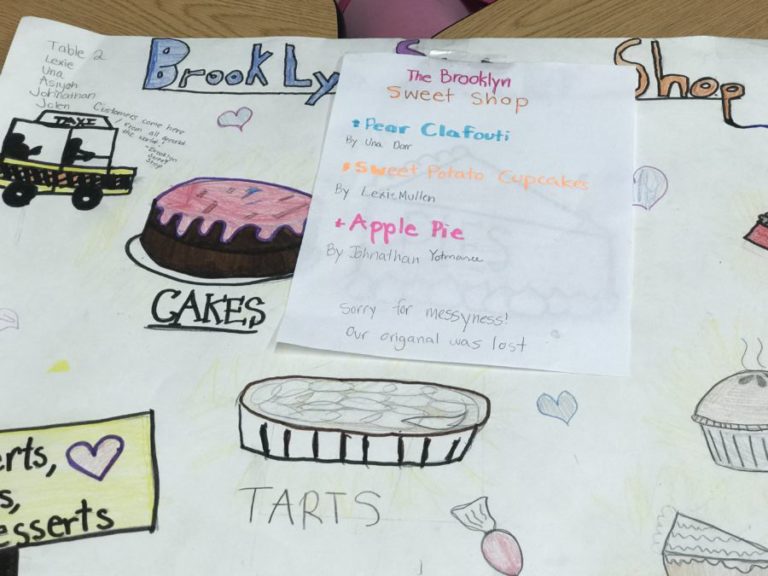 Table 2
Lexie
Una
Asiyah
Johnathan
Jolen
Brooklyn S Shop
Customers come here
from all around
the world!
-Brooklyn
Sweet
Shop
TAXI
The Brooklyn
Sweet Shop
Pear Clafouti
By Una Dorr
Sweet Potato Cupcakes
By Lexie Mullen
Apple Pie
By Johnathan
Sorry for messyness!
Our origanal was lost
CAKES
erts,
s,
esserts
TARTS